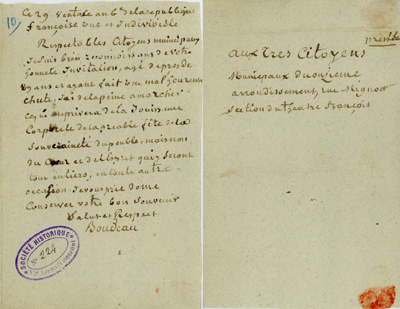 10
Ce 29 Ventose an 6e de la republique
françoise une et Indivisible
Respectables Citoyens municipaux
Je suis bien reconnoissans de votre
honnete Invitation, agé de pres de
ans et ayant fait une malheureuse
chute, j'ai de la peine a marcher
ce qui me privera de la Jouissance
Corporele de la greable fête de la
Souveraineté du peuple, mais non
du Coeur et de l'Esprit qui y seront
tous entiers, en toute autre
occasion Je vous prie de me
Conserver votre bon Souvenir
Salut et Respect
Boudeau
SOCIÉTÉ HISTORIQUE
No 224
VIe Arrondissement
Aux Tres Citoyens
Municipaux Du onzieme
arrondissement, rue Mignon
Section du theatre François